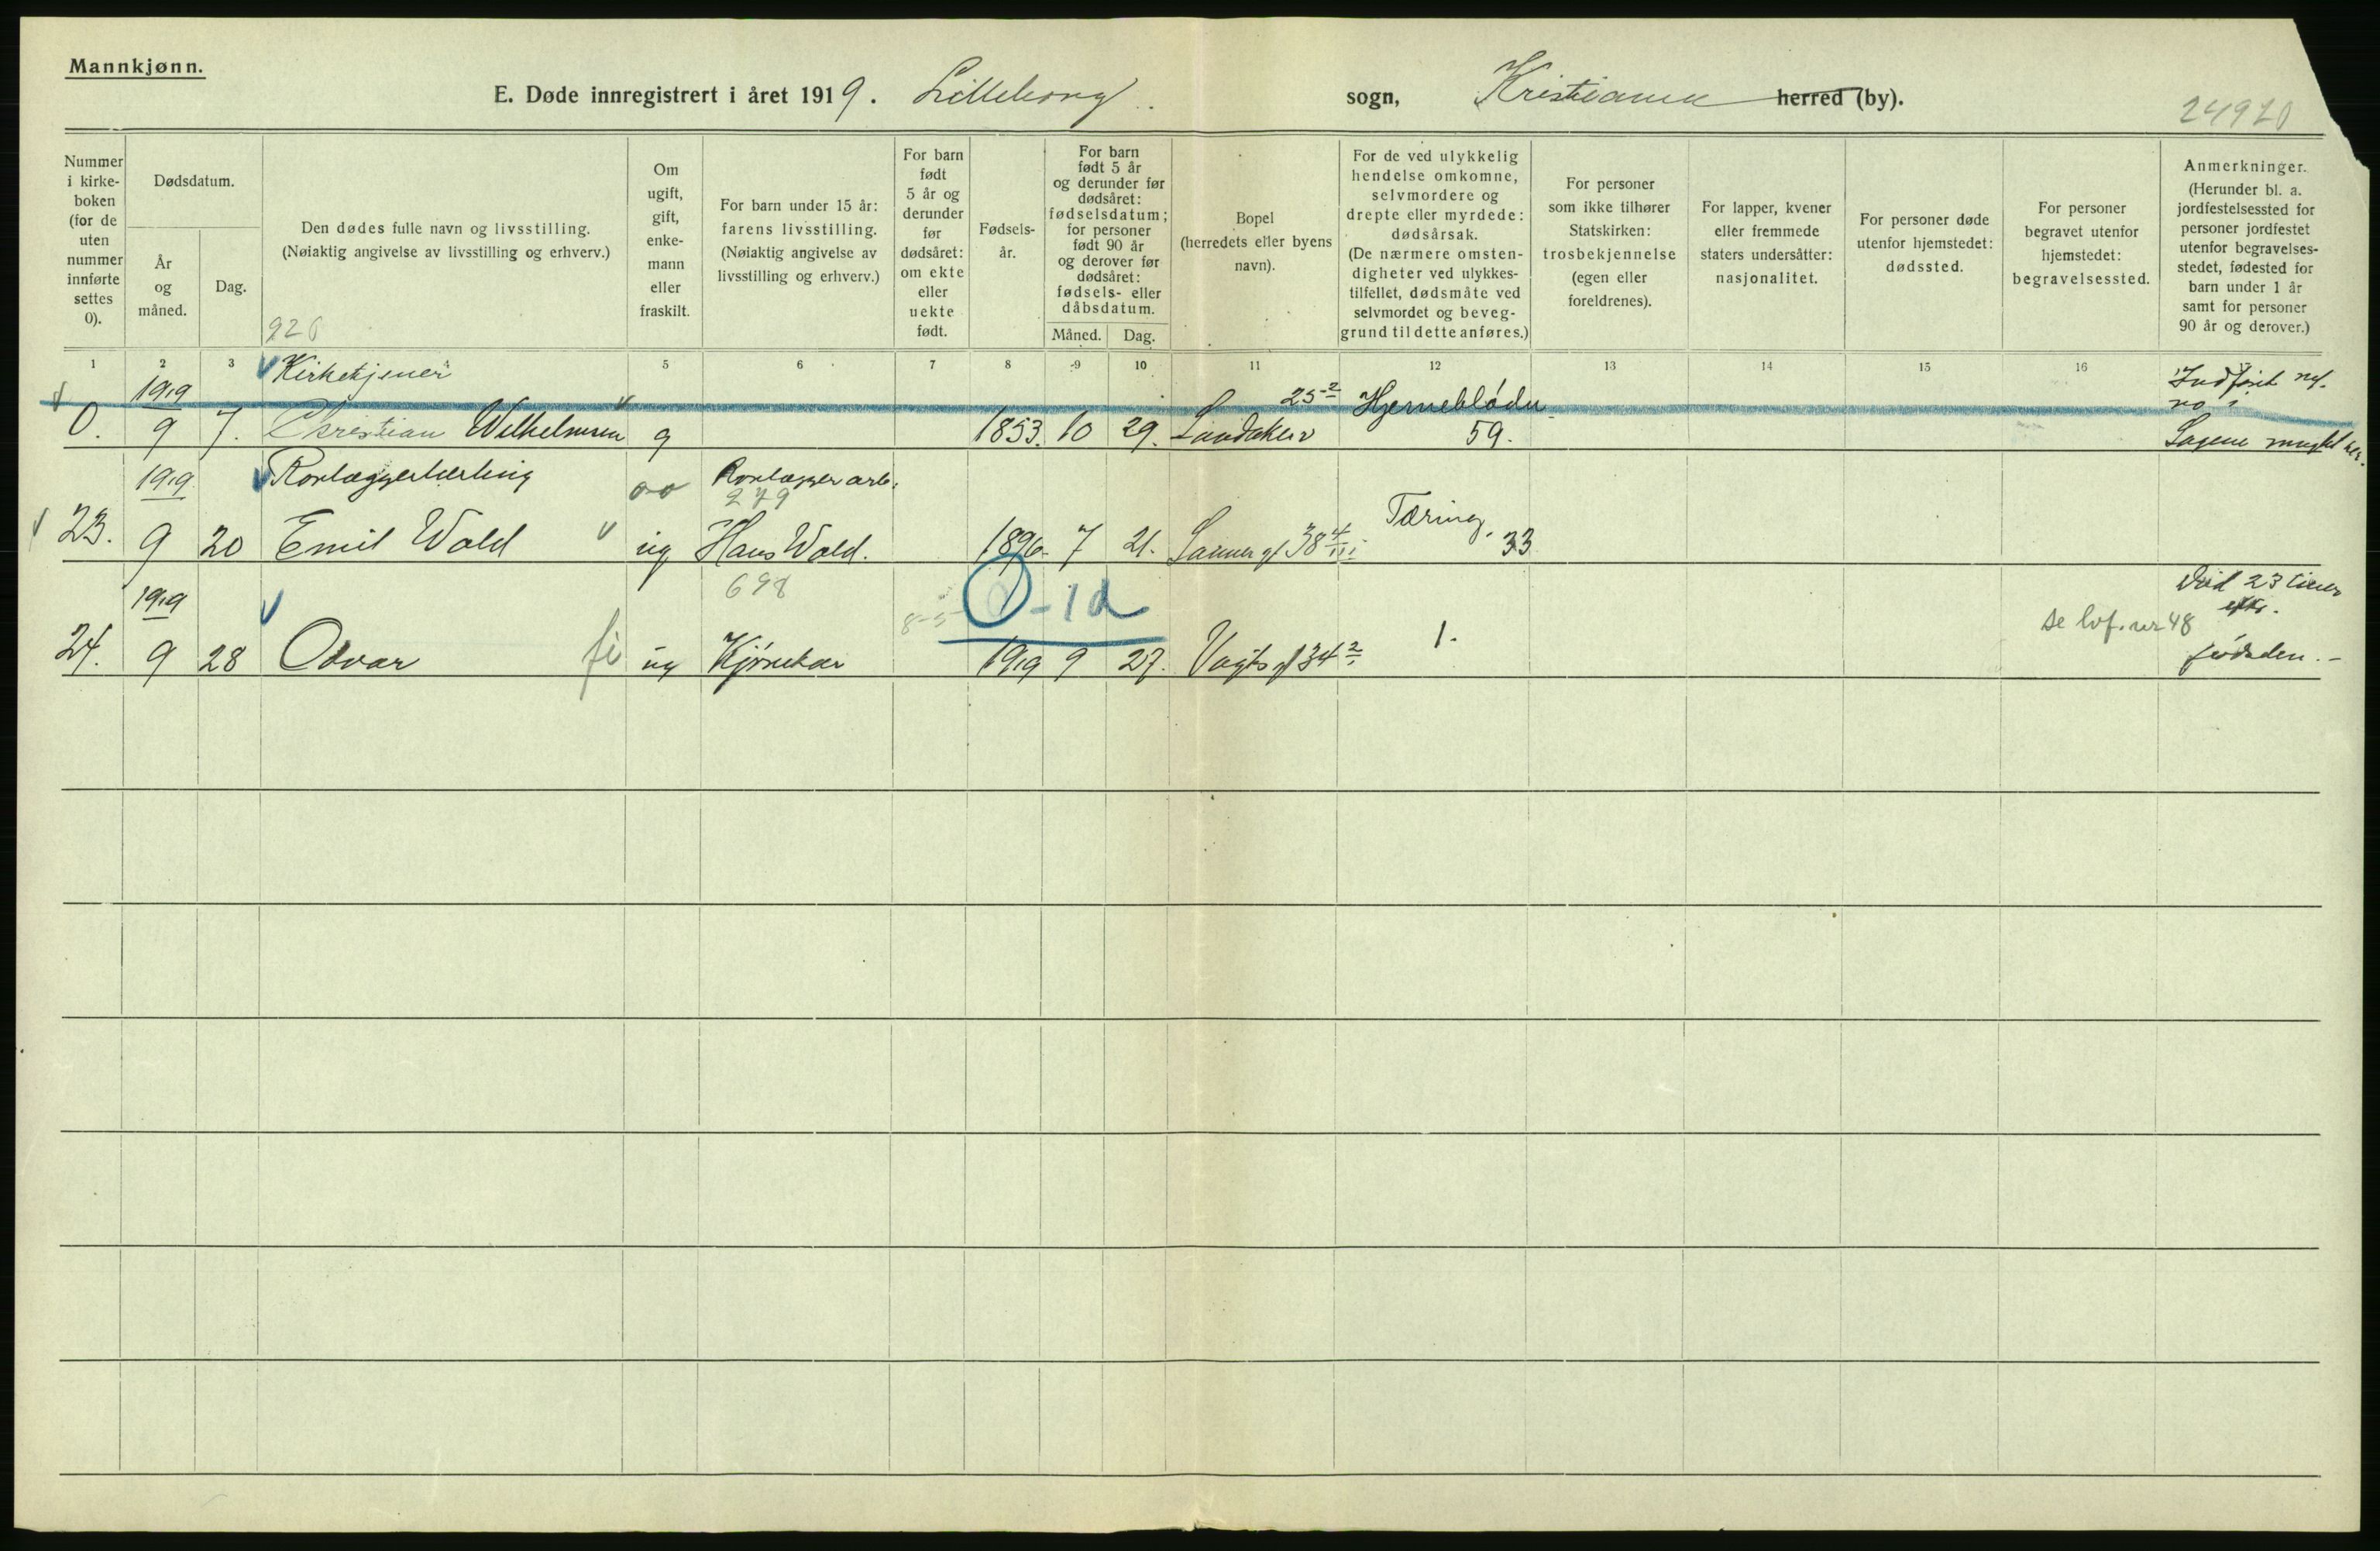 Mannkjønn.
E. Døde innregistrert i året 1919. Lilleborg sogn, Kristiania herred (by).
24920
Nummer i kirke-boken (for de uten nummer innførte settes 0).
Dødsdatum.
År og måned.
Dag.
Den dødes fulle navn og livsstilling.
(Nøiaktig angivelse av livsstilling og erhverv.)
920
Om ugift, gift, enke-mann eller fraskilt.
For barn under 15 år: farens livsstilling.
(Nøiaktig angivelse av livsstilling og erhverv.)
For barn født 5 år og derunder før dødsåret: om ekte eller uekte født.
Fødsels-år.
For barn født 5 år og derunder før dødsåret: fødselsdatum; for personer født 90 år og derover før dødsåret: fødsels- eller dåbsdatum.
Måned. Dag.
Bopel (herredets eller byens navn).
For de ved ulykkelig hendelse omkomne, selvmordere og drepte eller myrdede: dødsårsak.
(De nærmere omsten-digheter ved ulykkes-tilfellet, dødsmåte ved selvmordet og beveg-grund til dette anføres.)
For personer som ikke tilhører Statskirken: trosbekjennelse (egen eller foreldrenes).
For lapper, kvener eller fremmede staters undersåtter: nasjonalitet.
For personer døde utenfor hjemstedet: dødssted.
For personer begravet utenfor hjemstedet: begravelsessted.
Anmerkninger.
(Herunder bl. a. jordfestelsessted for personer jordfestet utenfor begravelses-stedet, fødested for barn under 1 år samt for personer 90 år og derover.)
1 2 3 5 6 7 8 9 10 11 12 13 14 15 16
1919 Kirketjener 25-2 Hjerneblødn Indført
no i
0. 9 7. Christian Wilhelmsen g 1853. 10 29. Sandakerv 59. Sagene
1919 Rørlæggerlærling Rørlæggerarb.
279
23. 9 20 Emil Wold ug Hans Wold. 1896 7 21. Sannergt 38 4/III Tæring. 33
1919 698 0-1d Død 23 timer
efter
8-5 se lvf. nr 48
24. 9 28 Odvar fi ug Kjørekar 1919 9 27. Vogtsgt 34 2 1. fødselen.-